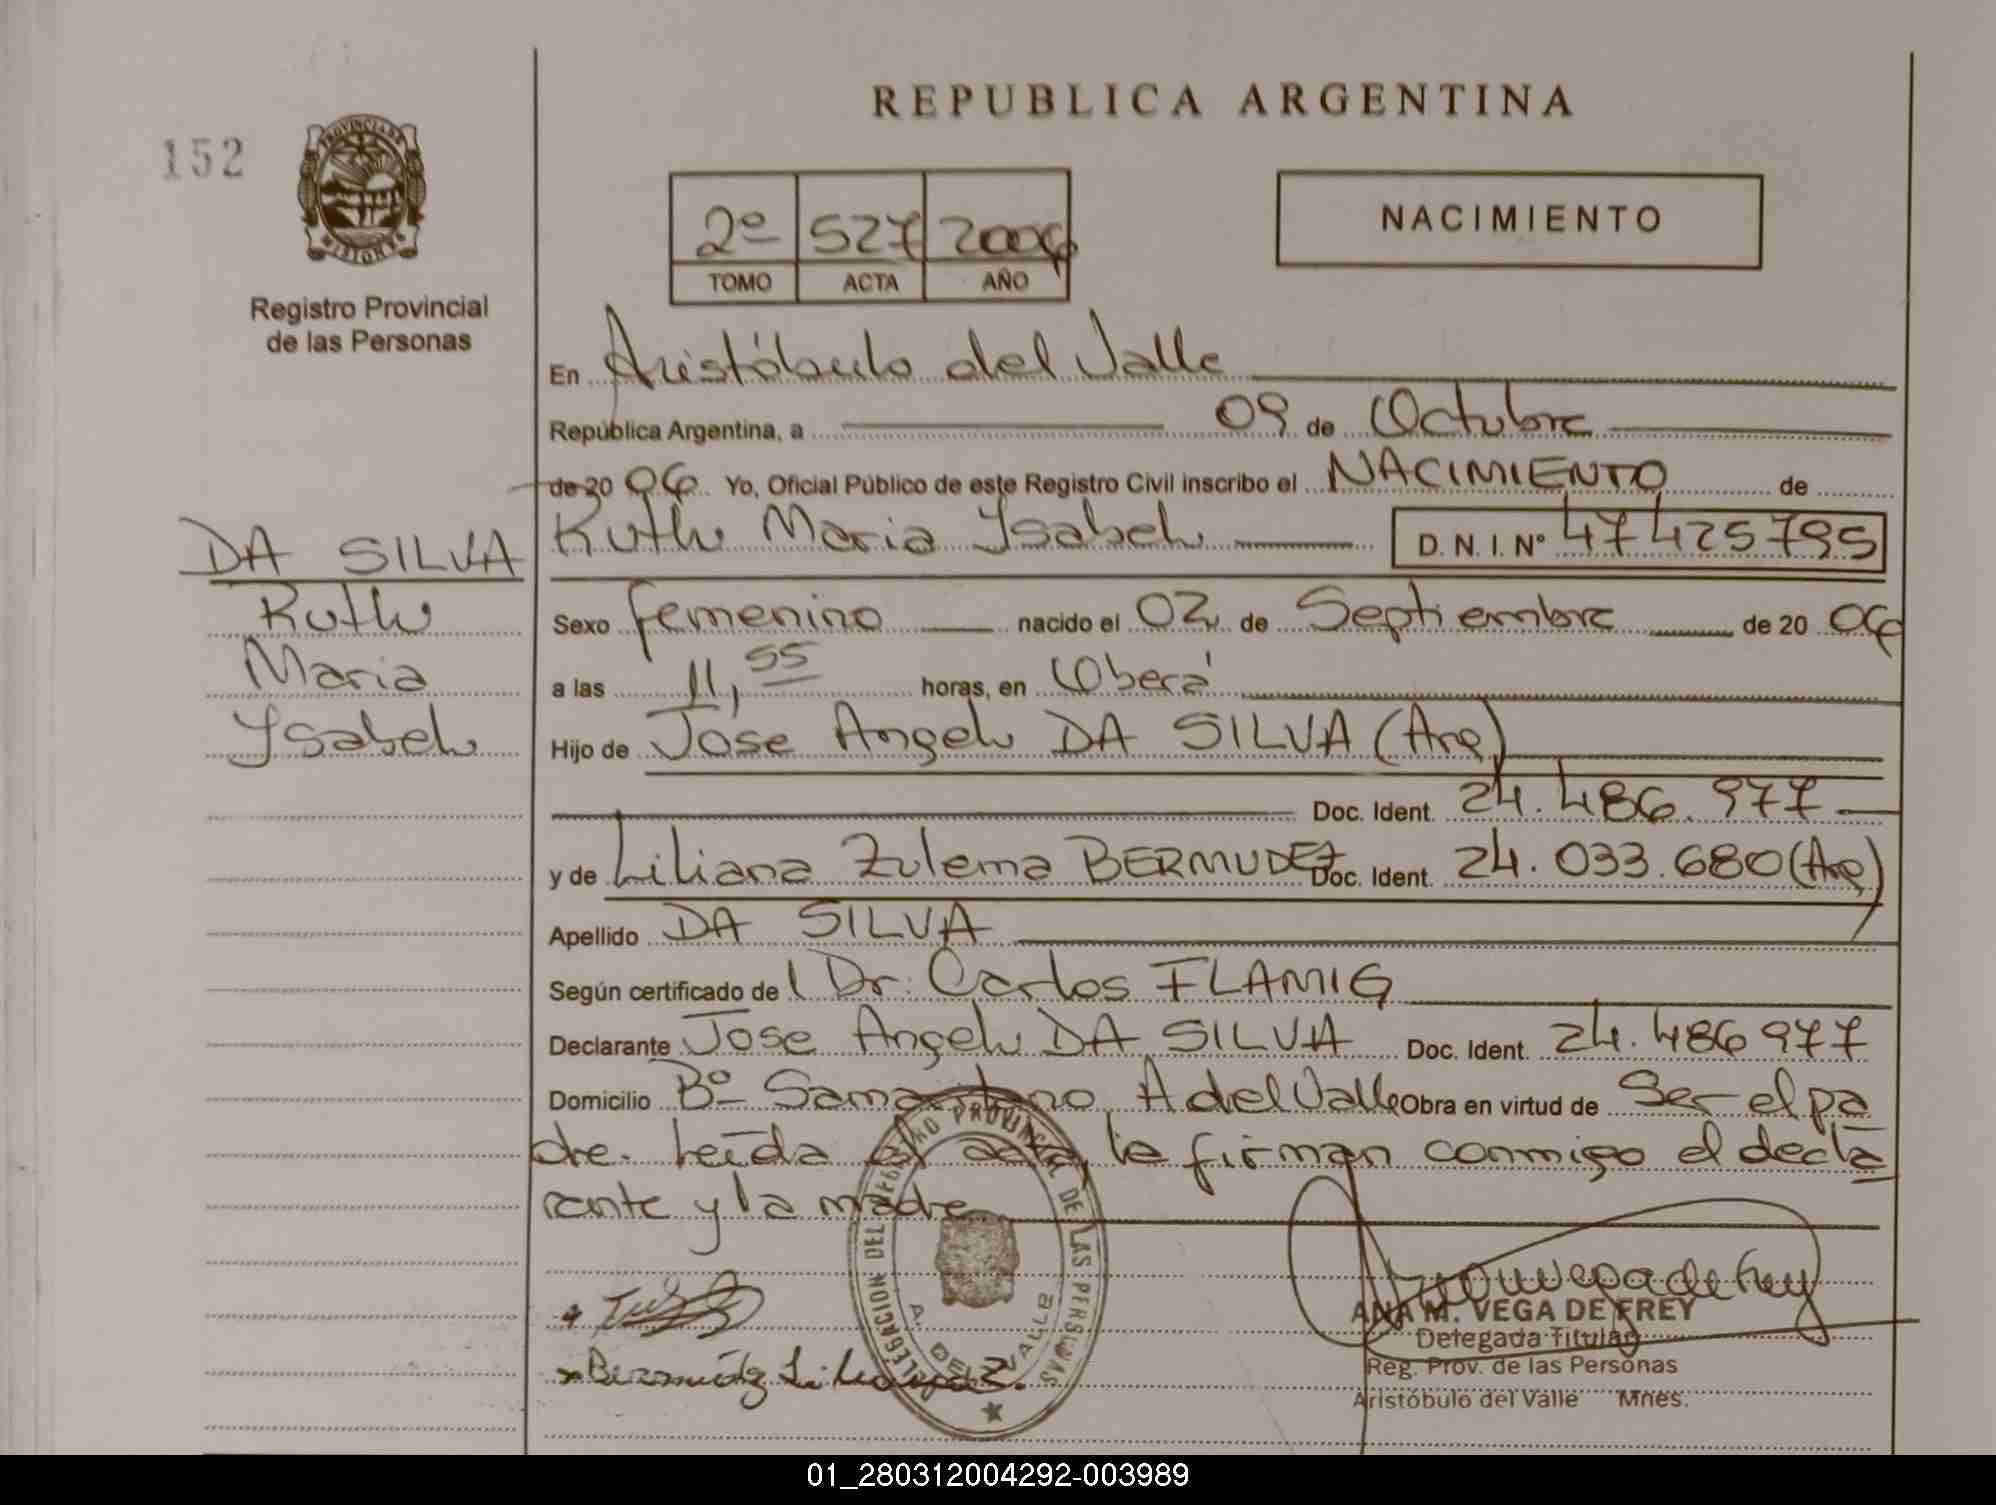 REPUBLICA ARGENTINA
152
PROVINCIA DE
MISIONES
Registro Provincial
de las Personas
2º 527 2006
TOMO ACTA AÑO
NACIMIENTO
En Aristóbulo del Valle
República Argentina, a 09 de Octubre
de 20 06 Yo, Oficial Público de este Registro Civil inscribo el NACIMIENTO de
DA SILVA
Ruth
Maria
Ysabel
Ruth Maria Ysabel D.N.I. Nº 47425795
Sexo femenino nacido el 02 de Septiembre de 20 06
a las 11,55 horas, en Oberá
Hijo de Jose Angel DA SILVA (Arg)
Doc. Ident. 24.486.977
y de Liliana Zulema BERMUDEZ Doc. Ident. 24.033.680 (Arg)
Apellido DA SILVA
Según certificado de l Dr. Carlos FLAMIG
Declarante Jose Angel DA SILVA Doc. Ident. 24.486977
Domicilio Bº Samaritano, A del Valle Obra en virtud de Ser el pa
dre. Leída el acta, la firman conmigo el decla
rante y la madre
DELEGACION DEL REGISTRO PROVINCIAL DE LAS PERSONAS
A. DEL VALLE
Bermúdez Liliana Z.
ANA M. VEGA DE FREY
Delegada Titular
Reg. Prov. de las Personas
Aristóbulo del Valle Mnes.
01_280312004292-003989